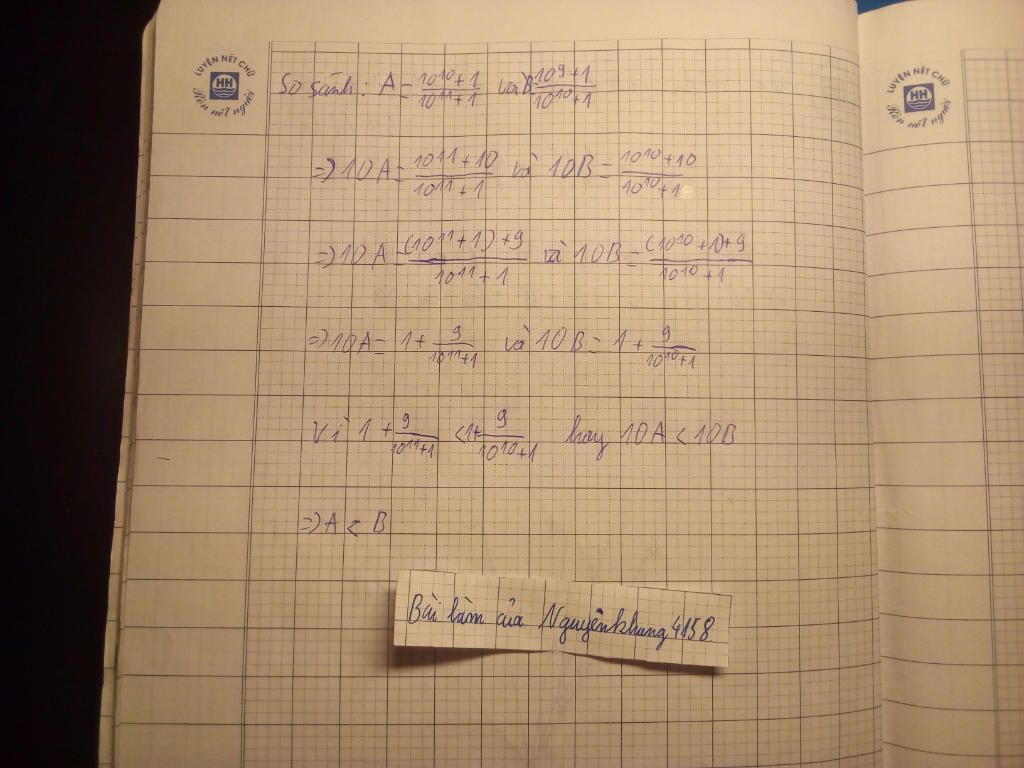 LUYỆN NẾT CHỮ
HH
Rèn nết người
LUYỆN NẾT CHỮ
HH
Rèn nết người
So sánh: A = \frac{10^{10}+1}{10^{11}+1} và B \frac{10^9+1}{10^{10}+1}
=> 10A = \frac{10^{11}+10}{10^{11}+1} và 10B = \frac{10^{10}+10}{10^{10}+1}
=> 10A = \frac{(10^{11}+1)+9}{10^{11}+1} và 10B = \frac{(10^{10}+1)+9}{10^{10}+1}
=> 10A = 1 + \frac{9}{10^{11}+1} và 10B = 1 + \frac{9}{10^{10}+1}
Vì 1 + \frac{9}{10^{11}+1} < 1 + \frac{9}{10^{10}+1} hay 10A < 10B
=> A < B
Bài làm của Nguyênkhung4158